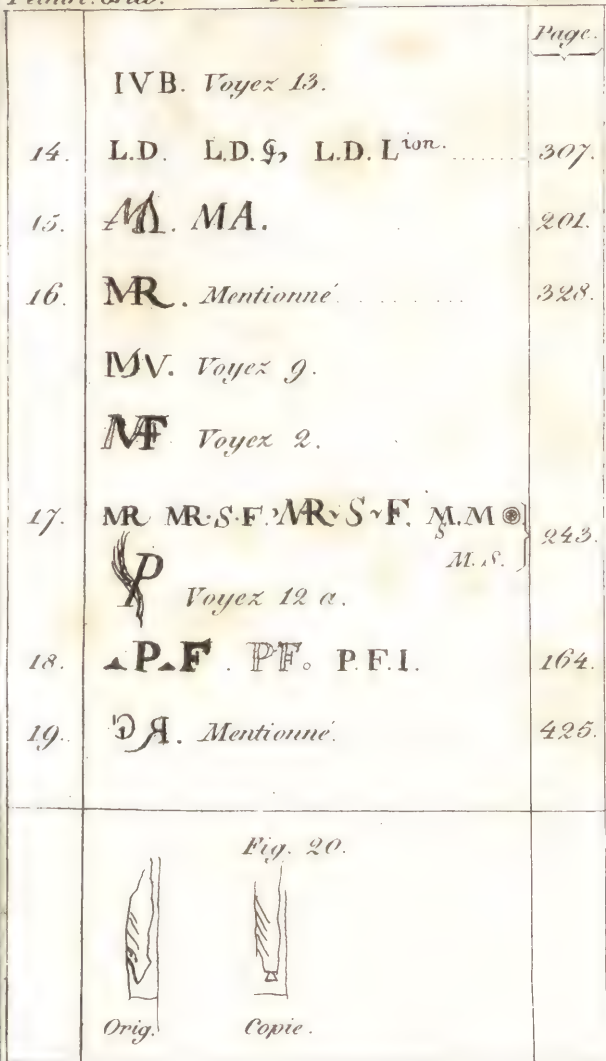 Page.
IVB. Voyez 13.
14. L.D. L.D. L.D. L^ion. 307.
15. MA. MA. 201.
16. MR. Mentionné 328.
MV. Voyez 9.
MF Voyez 2.
17. MR MR·S·F. MR·S·F. M.M 243.
S
M.S.
P Voyez 12 a.
18. P.F. PF. P.F.I. 164.
19. Mentionné. 425.
Fig. 20.
Orig. Copie.